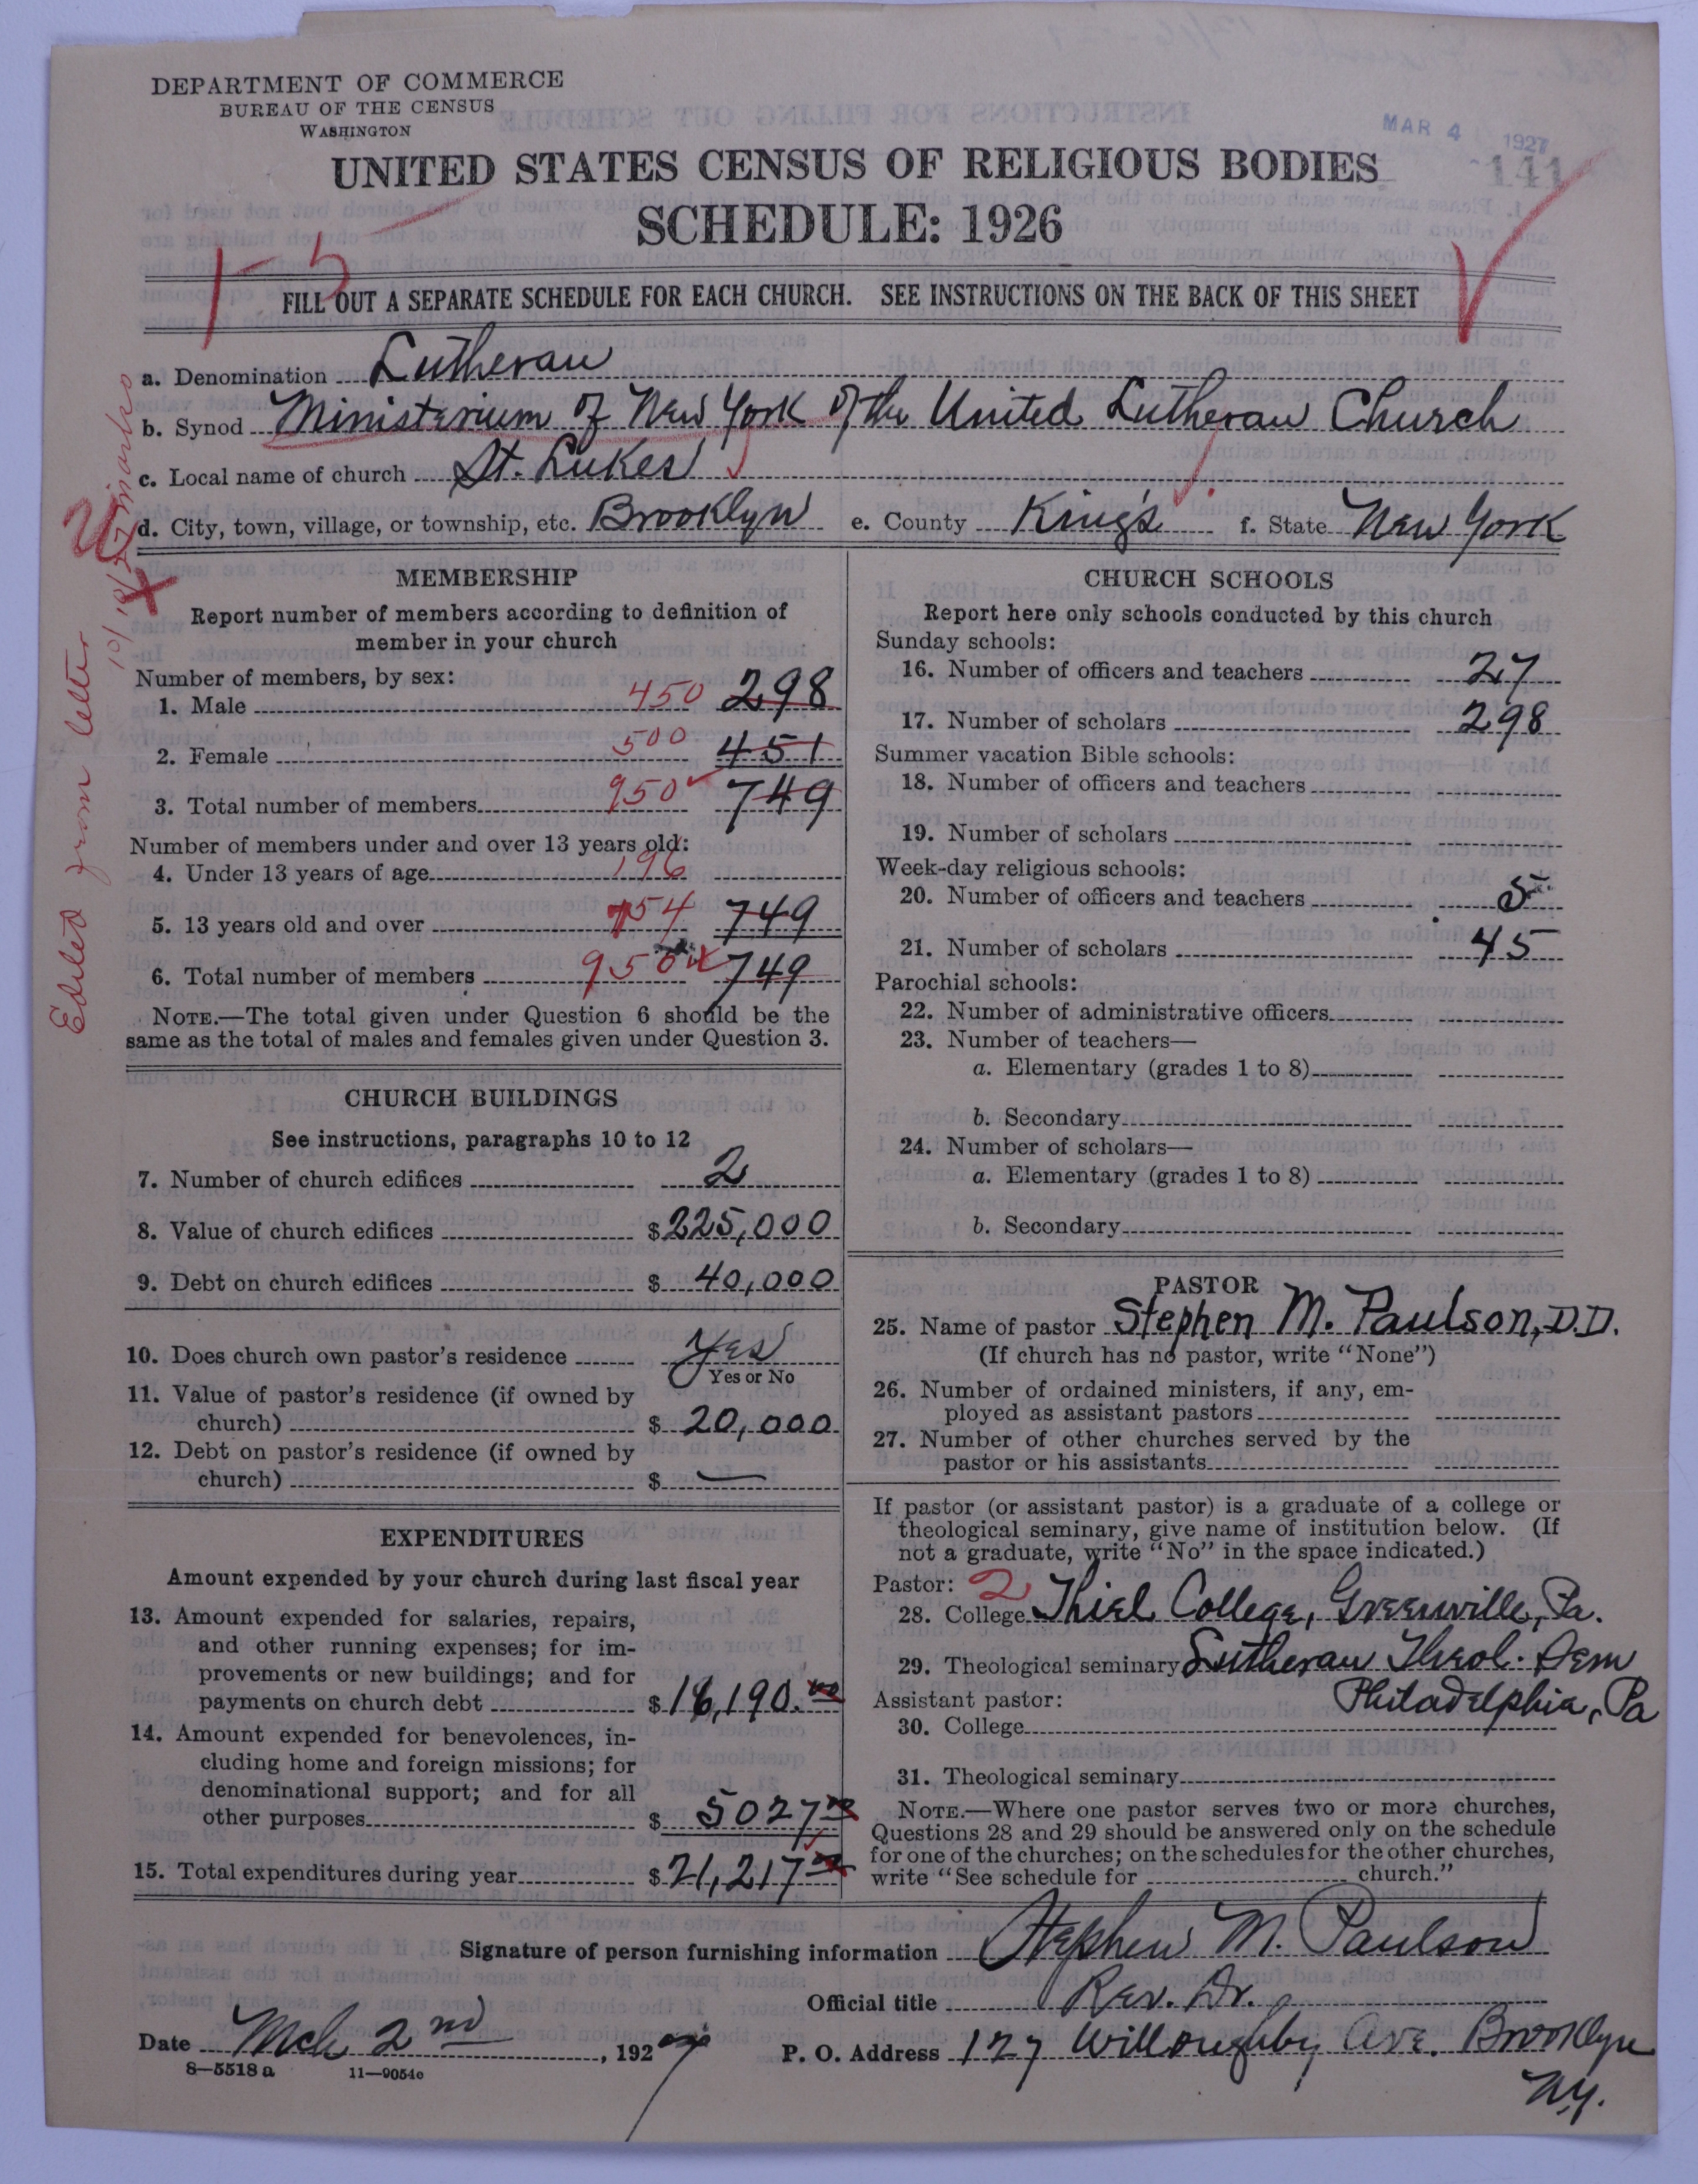 DEPARTMENT OF COMMERCE
BUREAU OF THE CENSUS
WASHINGTON
MAR 4 1927
141
UNITED STATES CENSUS OF RELIGIOUS BODIES
SCHEDULE: 1926
1-5
FILL OUT A SEPARATE SCHEDULE FOR EACH CHURCH. SEE INSTRUCTIONS ON THE BACK OF THIS SHEET
a. Denomination Lutheran
b. Synod Ministerium of New York of the United Lutheran Church
c. Local name of church St. Lukes
d. City, town, village, or township, etc. Brooklyn e. County King's f. State New York
Edited from letter
MEMBERSHIP
Report number of members according to definition of
member in your church
Number of members, by sex:
1. Male 450 298
2. Female 500 451
3. Total number of members 950 749
Number of members under and over 13 years old:
4. Under 13 years of age 196
5. 13 years old and over 754 749
6. Total number of members 950 749
NOTE.—The total given under Question 6 should be the
same as the total of males and females given under Question 3.
CHURCH BUILDINGS
See instructions, paragraphs 10 to 12
7. Number of church edifices 2
8. Value of church edifices $225,000
9. Debt on church edifices $ 40,000
10. Does church own pastor's residence Yes
Yes or No
11. Value of pastor's residence (if owned by
church) $ 20,000
12. Debt on pastor's residence (if owned by
church) $ —
EXPENDITURES
Amount expended by your church during last fiscal year
13. Amount expended for salaries, repairs,
and other running expenses; for im-
provements or new buildings; and for
payments on church debt $16,190.00
14. Amount expended for benevolences, in-
cluding home and foreign missions; for
denominational support; and for all
other purposes $ 5027 00
15. Total expenditures during year $21,217 00
CHURCH SCHOOLS
Report here only schools conducted by this church
Sunday schools:
16. Number of officers and teachers 27
17. Number of scholars 298
Summer vacation Bible schools:
18. Number of officers and teachers
19. Number of scholars
Week-day religious schools:
20. Number of officers and teachers 5
21. Number of scholars 45
Parochial schools:
22. Number of administrative officers
23. Number of teachers—
a. Elementary (grades 1 to 8)
b. Secondary
24. Number of scholars—
a. Elementary (grades 1 to 8)
b. Secondary
PASTOR
25. Name of pastor Stephen M. Paulson, D.D.
(If church has no pastor, write "None")
26. Number of ordained ministers, if any, em-
ployed as assistant pastors
27. Number of other churches served by the
pastor or his assistants
If pastor (or assistant pastor) is a graduate of a college or
theological seminary, give name of institution below. (If
not a graduate, write "No" in the space indicated.)
Pastor: 2
28. College Thiel College, Greenville, Pa.
29. Theological seminary Lutheran Theol. Sem
Philadelphia, Pa
Assistant pastor:
30. College
31. Theological seminary
NOTE.—Where one pastor serves two or more churches,
Questions 28 and 29 should be answered only on the schedule
for one of the churches; on the schedules for the other churches,
write "See schedule for church."
Signature of person furnishing information Stephen M. Paulson
Official title Rev. Dr.
Date Mch 2nd, 1927 P. O. Address 127 Willoughby Ave. Brooklyn
N.Y.
8—5518 a 11—9054c